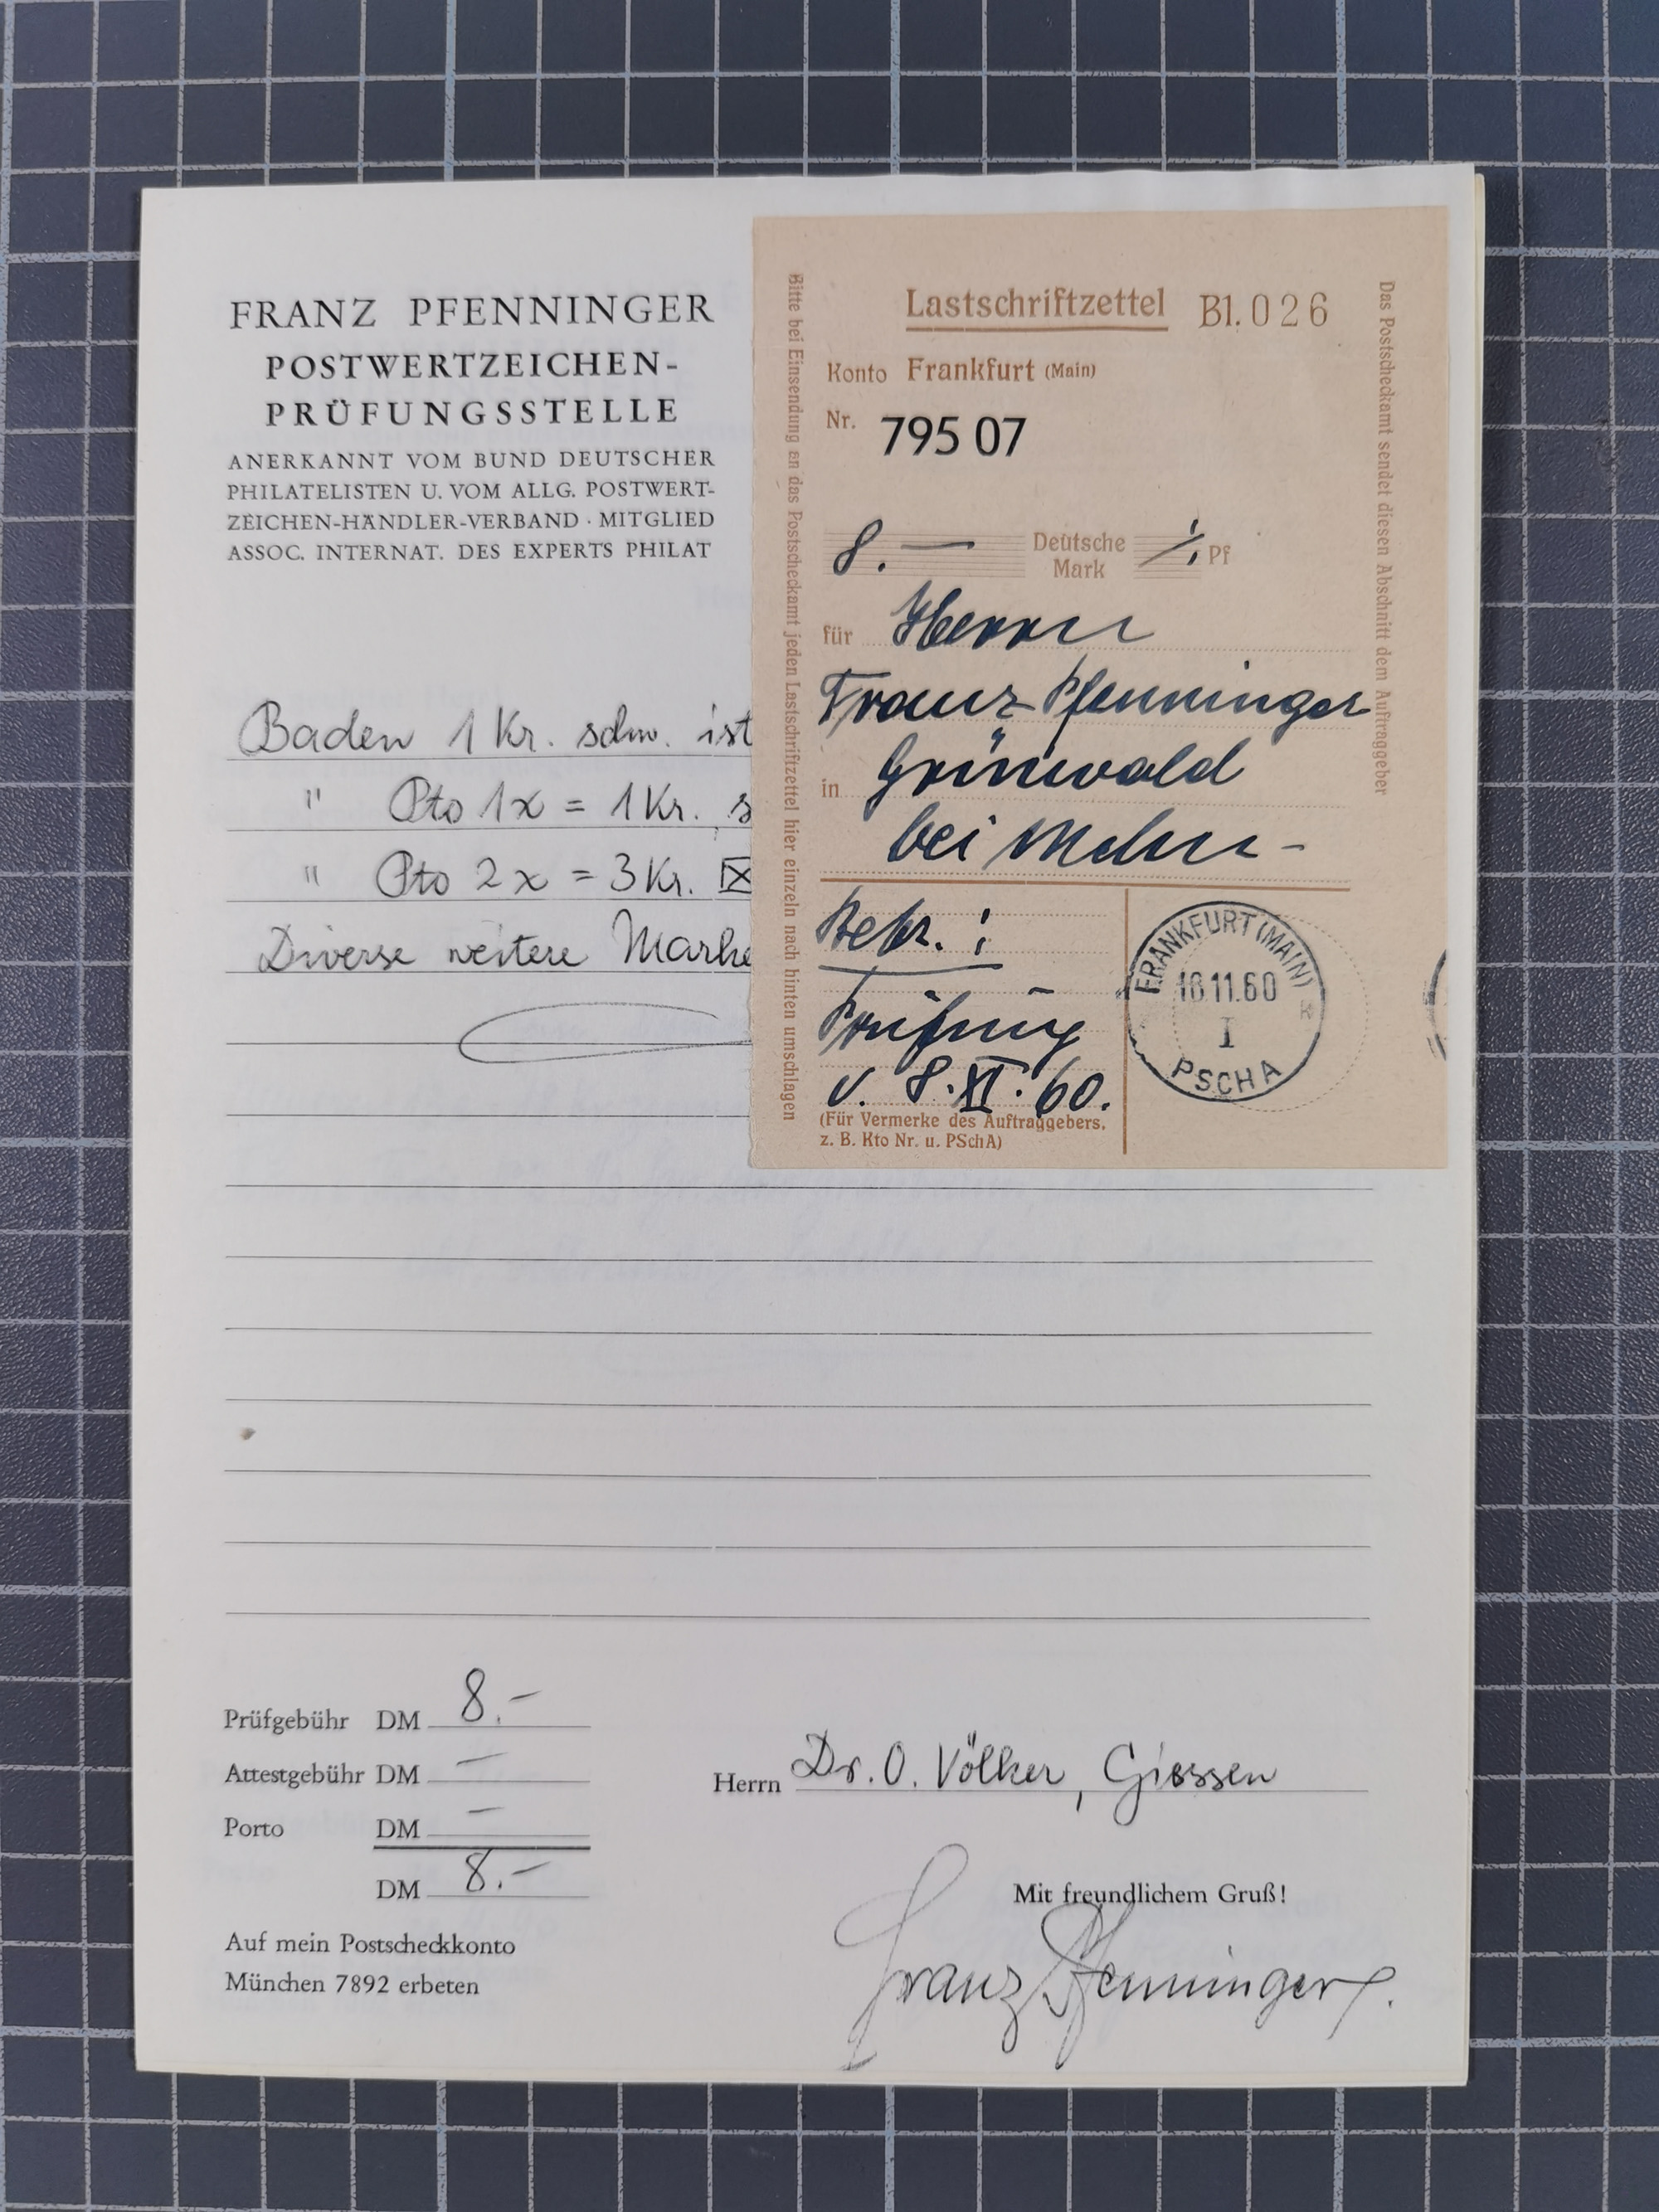 FRANZ PFENNINGER
POSTWERTZEICHEN-
PRÜFUNGSSTELLE
ANERKANNT VOM BUND DEUTSCHER
PHILATELISTEN U. VOM ALLG. POSTWERT-
ZEICHEN-HÄNDLER-VERBAND · MITGLIED
ASSOC. INTERNAT. DES EXPERTS PHILAT
Baden 1 Kr. schw. ist
" Pto 1x = 1 Kr. s
" Pto 2x = 3 Kr.
Diverse weitere Marke
Bitte bei Einsendung an das Postscheckamt jeden Lastschriftzettel hier einzeln nach hinten umschlagen
Lastschriftzettel Bl. 026
Konto Frankfurt (Main)
Nr. 795 07
8. — Deutsche Mark Pf
für Herrn
Franz Pfenninger
in Grünwald
bei
Betr. :
Prüfung
v. 8. XI. 60.
(Für Vermerke des Auftraggebers,
z. B. Kto Nr. u. PSchA)
FRANKFURT (MAIN)
11.60
I
PSCHA
Das Postscheckamt sendet diesen Abschnitt dem Auftraggeber
Prüfgebühr DM 8.-
Attestgebühr DM -
Porto DM -
DM 8.-
Auf mein Postscheckkonto
München 7892 erbeten
Herrn Dr. O. Völker, Giessen
Mit freundlichem Gruß!
Franz Pfenninger